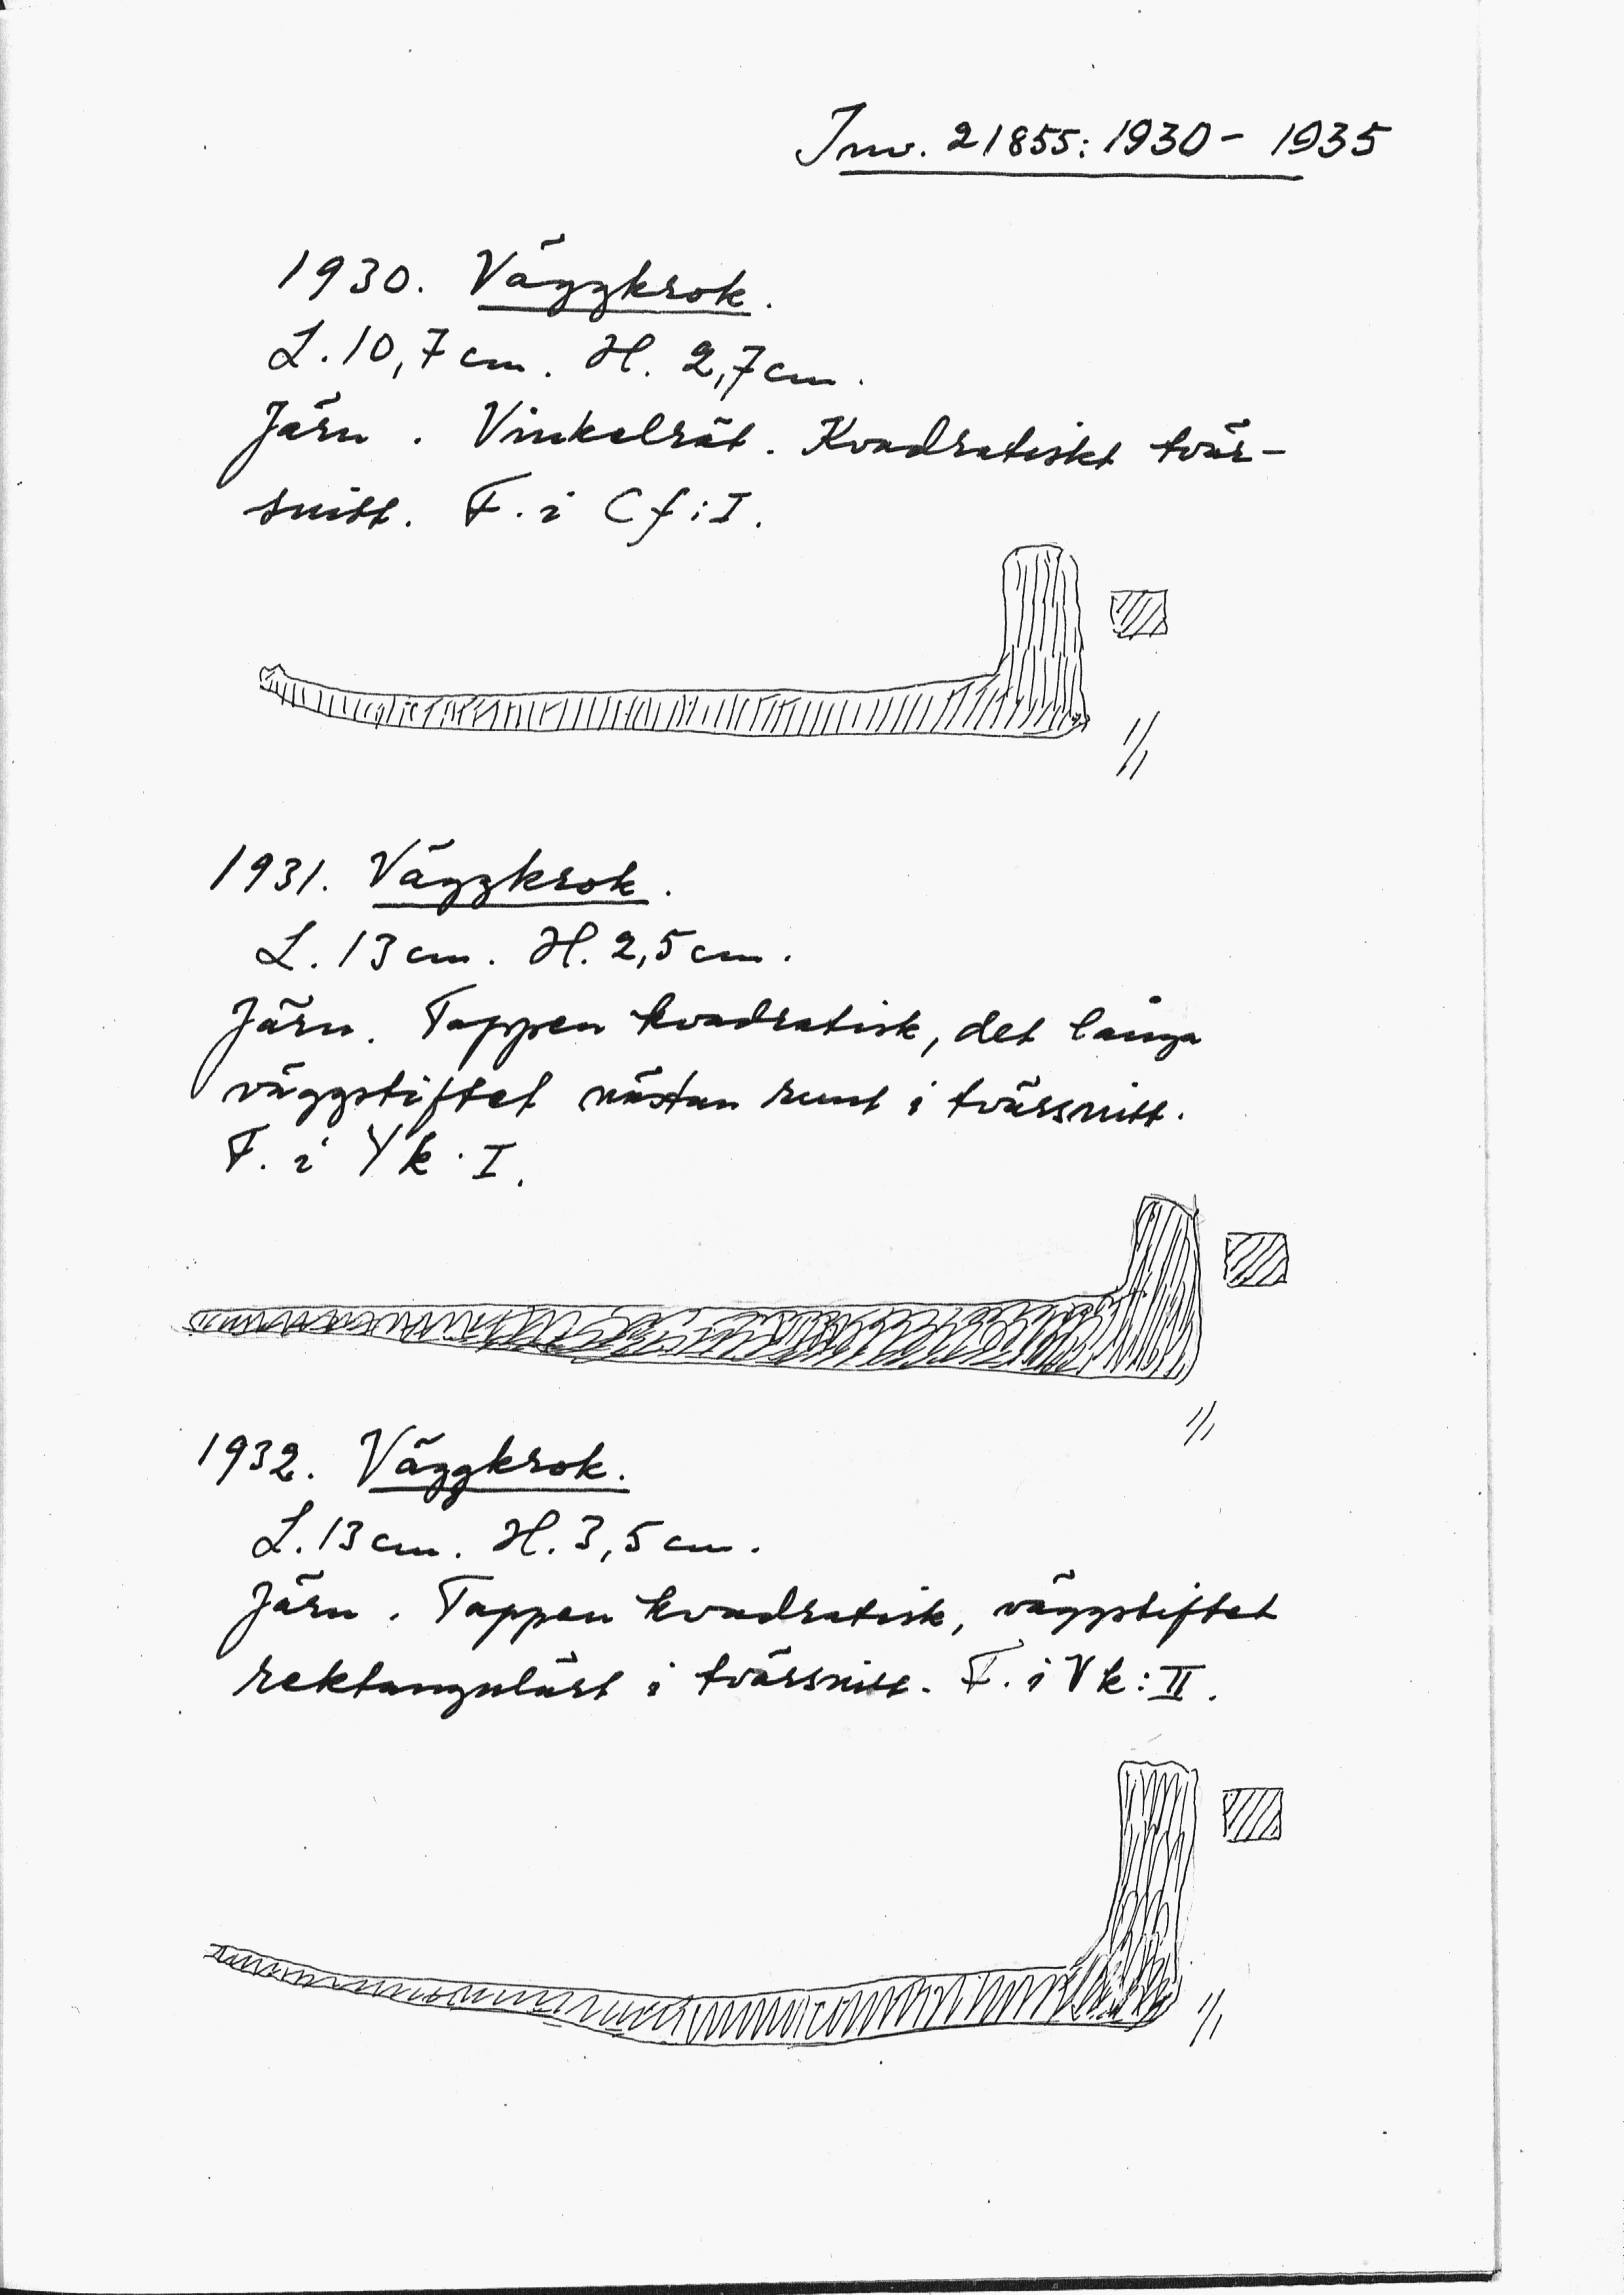 Inv. 21855:1930- 1935
1930. Väggkrok.
L. 10,7 cm. H. 2,7 cm.
Järn. Vinkelrät. Kvadratiskt tvär-
snitt. F. i Cf:I.
1/1
1931. Väggkrok.
L. 13 cm. H. 2,5 cm.
Järn. Tappen kvadratisk, det långa
väggstiftet nästan runt i tvärsnitt.
F. i Yk:I.
1/1
1932. Väggkrok.
L. 13 cm. H. 3,5 cm.
Järn. Tappen kvadratisk, väggstiftet
rektangulärt i tvärsnitt. F. i Vk:II.
1/1